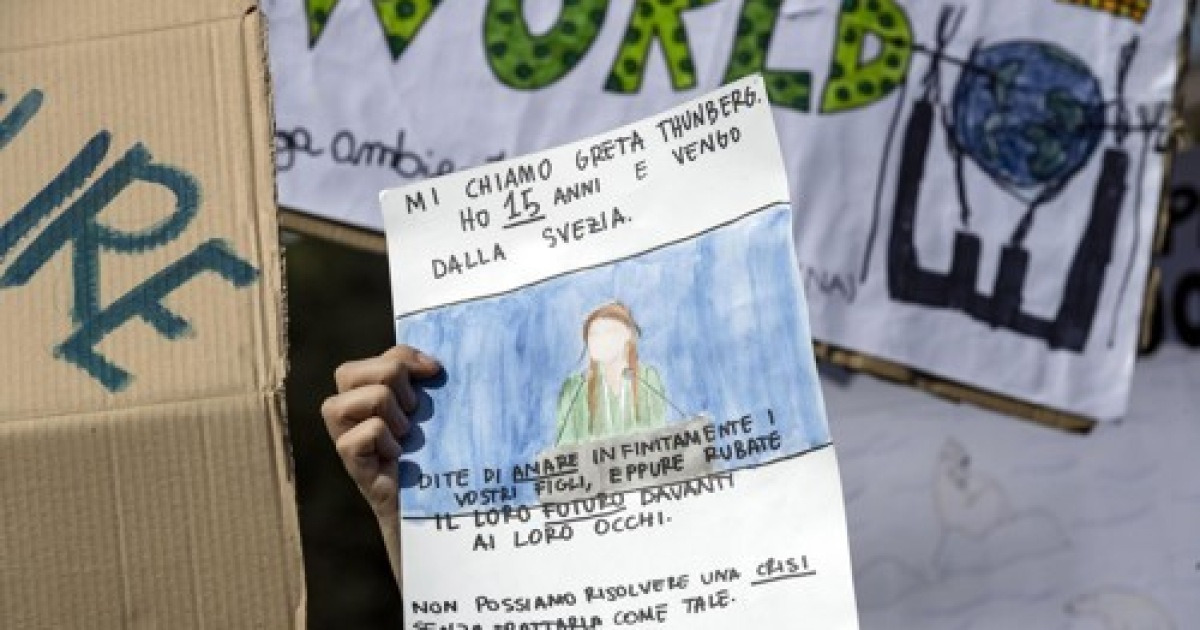 WORLD
URE
MI CHIAMO GRETA THUNBERG.
HO 15 ANNI E VENGO
DALLA SVEZIA.
DITE DI AMARE INFINITAMENTE I
VOSTRI FIGLI, EPPURE RUBATE
IL LORO FUTURO DAVANTI
AI LORO OCCHI.
NON POSSIAMO RISOLVERE UNA CRISI
SENZA TRATTARLA COME TALE.